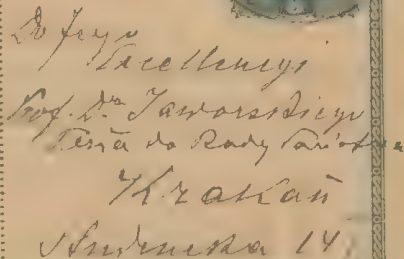 Do Jego
Excellencyi
Prof. Dra Jaworskiego
do Rady
Kraków
Studencka 14